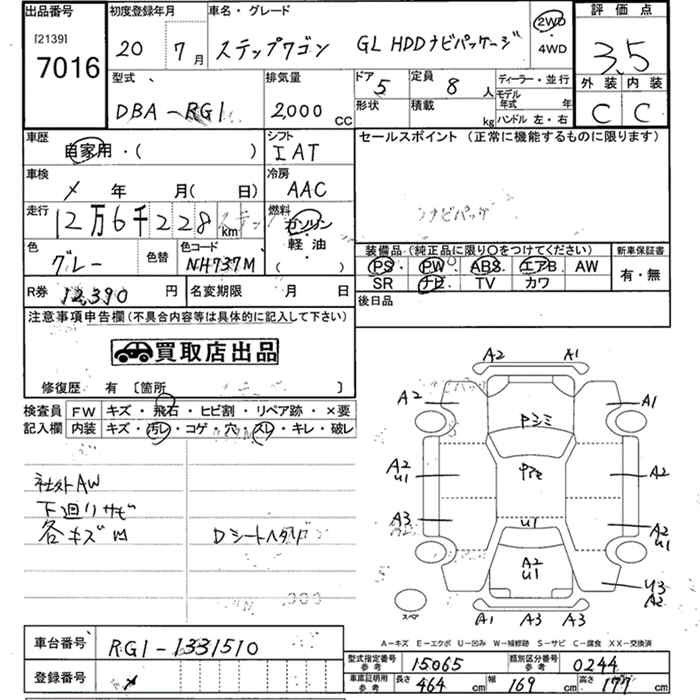 出品番号 初度登録年月 車名・グレード 評価点
[2139] 7016 20 7月 ステップワゴン GL HDDナビパッケージ 2WD・4WD 3.5
型式 排気量 ドア 5 定員 8人 ディーラー・並行 外装 内装
DBA-RG1 2,000 CC 形状 積載 kg モデル年式 年 C C
ハンドル 左・右
車歴 自家用・( ) シフト IAT セールスポイント(正常に機能するものに限ります)
車検 × 年 月( 日) 冷房 AAC
走行 12万6千228km 燃料 ガソリン・軽油 ( ) ナビパッケ
色 グレー 色替 色コード NH737M 装備品(純正品に限り○をつけてください) 新車保証書
PS・PW・ABS・エアB AW 有・無
SR ナビ TV カワ
R券 12,390円 名変期限 月 日 後日品
注意事項申告欄(不具合内容等は具体的に記入して下さい)
買取店出品
修復歴 有 〔箇所 〕
検査員記入欄 FW キズ・飛石・ヒビ割・リペア跡・×要
内装 キズ・汚レ・コゲ・穴・スレ・キレ・破レ
社外AW
下廻リサビ
各キズ凹 Dシートヘタリ
A2 A1
A2 A1
Pシミ
A2 U1 A2
A3 U1 A2 U1
A2 U1 U3 A2
スペア A1 A3 A3
A-キズ E-エクボ U-凹み W-補修跡 S-サビ C-腐食 XX-交換済
車台番号 RG1-1331510 型式指定番号 参考 15065 類別区分番号 参考 0244
登録番号 × 車庫証明用 参考 長さ 464cm 幅 169cm 高さ 177cm